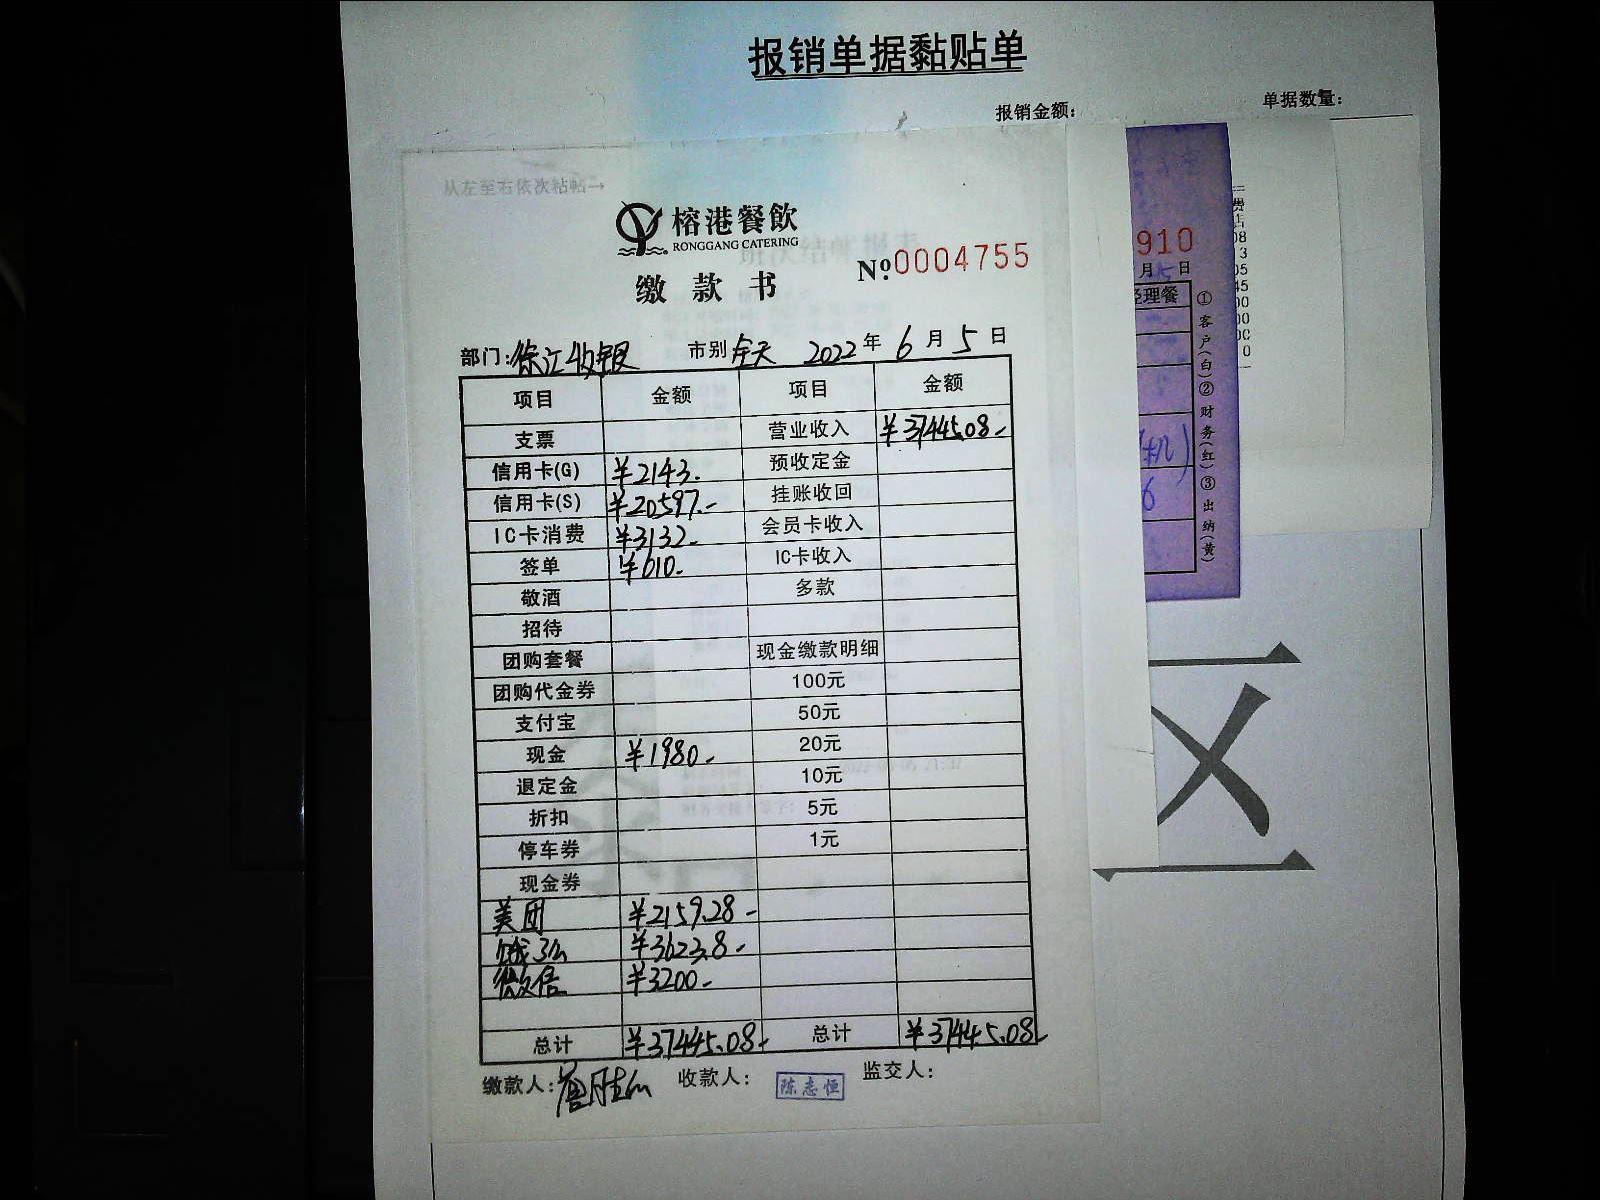 报销单据黏贴单
报销金额: 单据数量:
从左至右依次粘帖→
榕港餐飲
RONGGANG CATERING
缴款书 №0004755
部门: 徐汇收银 市别 全天 2022年6月5日
项目 金额 项目 金额
支票 营业收入 ¥37445.08-
信用卡(G) ¥2143. 预收定金
信用卡(S) ¥20597.- 挂账收回
IC卡消费 ¥3132- 会员卡收入
签单 ¥610- IC卡收入
敬酒 多款
招待
团购套餐 现金缴款明细
团购代金券 100元
支付宝 50元
现金 ¥1980- 20元
退定金 10元
折扣 5元
停车券 1元
现金券
美团 ¥2159.28-
饿了么 ¥3623.8-
微信 ¥3200-
总计 ¥37445.08- 总计 ¥37445.08-
缴款人: 收款人: 陈志恒 监交人:
910
月 5 日
理餐
①客户(白)②财务(红)③出纳(黄)
区